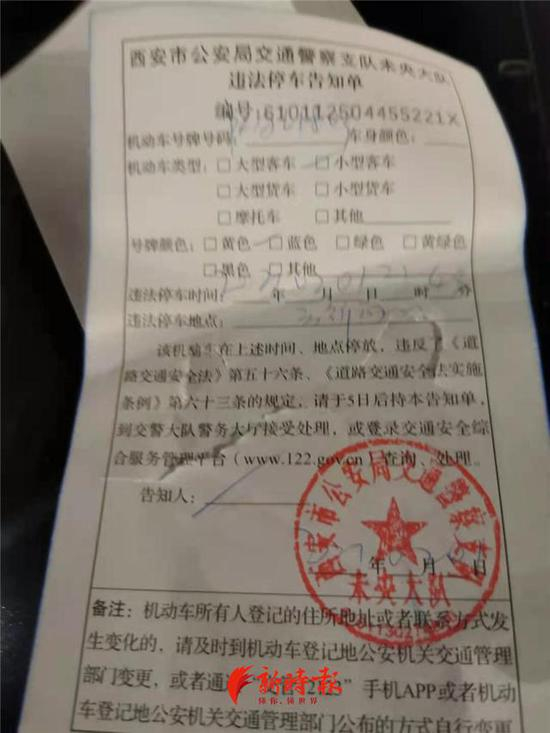 西安市公安局交通警察支队未央大队
违法停车告知单
编号:610112504455221X
机动车号牌号码: 车身颜色:
机动车类型: □大型客车 □小型客车
□大型货车 □小型货车
□摩托车 □其他
号牌颜色: □黄色 □蓝色 □绿色 □黄绿色
□黑色 □其他
违法停车时间: 年 月 日 时 分
违法停车地点:
该机动车在上述时间、地点停放，违反了《道
路交通安全法》第五十六条、《道路交通安全法实施
条例》第六十三条的规定，请于5日后持本告知单，
到交警大队警务大厅接受处理，或登录交通安全综
合服务管理平台（www.122.gov.cn）查询、处理。
告知人:
年 月 日
西安市公安局交通警察支队
未央大队
备注: 机动车所有人登记的住所地址或者联系方式发
生变化的，请及时到机动车登记地公安机关交通管理
部门变更，或者通过“ ”手机APP或者机动
车登记地公安机关交通管理部门公布的方式自行变更
新时报
懂你,懂世界